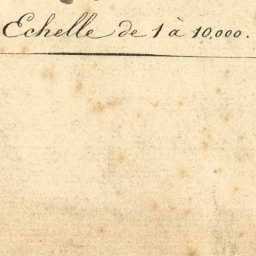 Echelle de 1 à 10,000.